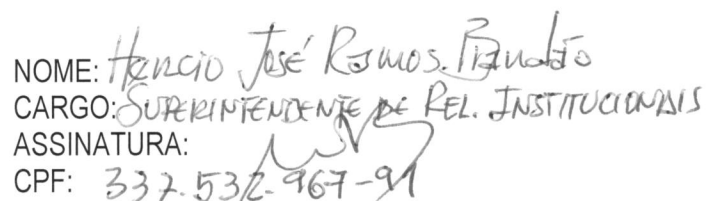 NOME: Hancio José Ramos.
CARGO: SUPERINTENDENTE DE REL. INSTITUCIONAIS
ASSINATURA:
CPF: 337.532.967-91